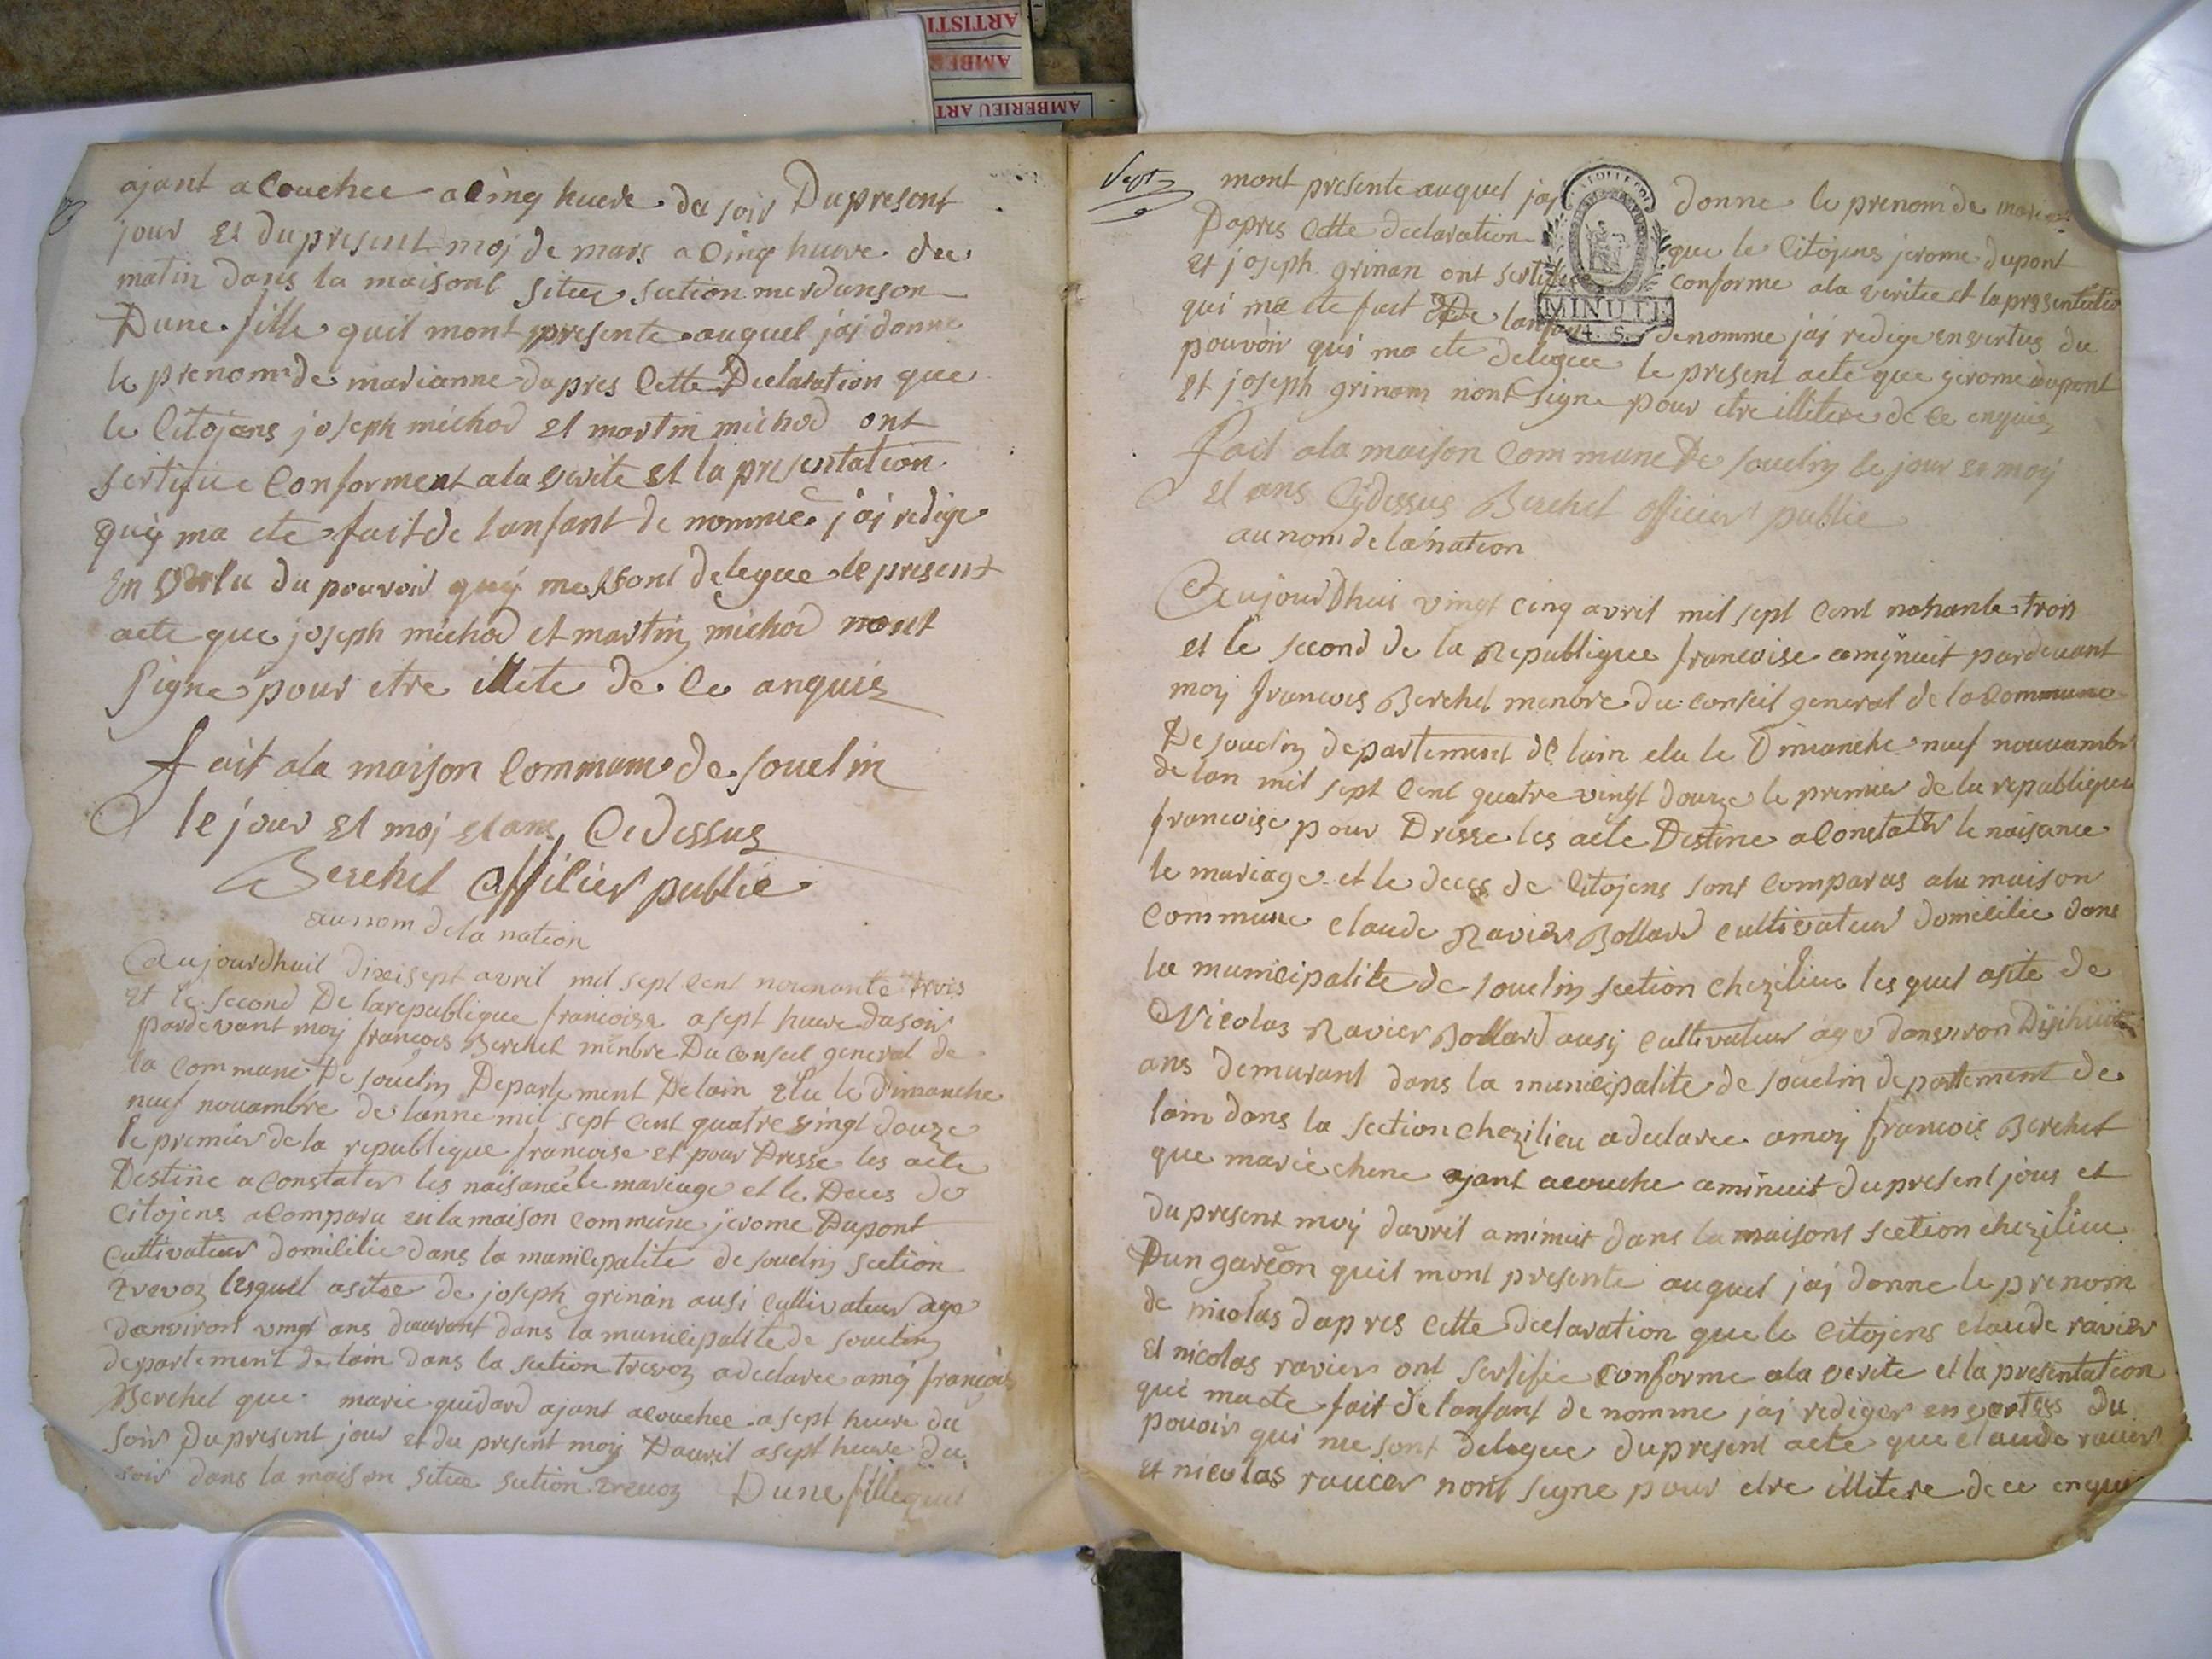 ARTISTI
AMBER
AMBERIEU ART
ajant acouchee a cinq huere du soir Du present
jour et du present moj de mars a cinq huere du
matin dans la maisont situee section merdanson
Dune fille quil mont presente auquel jaj donne
le prenom de marianne dapres cette Declaration que
le Citojens joseph michod et martin michod ont
sertifiee Conforment ala verite et la presentation
quÿ ma ete fait de lanfant de nomme jaj redige
En vertu du pouvoir quÿ me sont delegue le present
acte que joseph michod et martin michod nont
signe pour etre illete de ce anquis
fait ala maison Commune de souclin
le jour et moj et ans Cidessus
Berchet officier public
au nom de la nation
Aujourdhuit dixisept avril mil sept cent nounante trois
et le second De la republique francoise a sept huere du soir
pardevant moy françois Berchet menbre Du conseil general de
la commune De souclin Departement De lain Elu le Dimanche
neuf nouambre de lanne mil sept cent quatre vingt douze
le premier de la republique francoise et pour Dresse les acte
Destine a constater les naisance le mariage et le Deces de
Citojens a Comparu en la maison commune jerome Dupont
cultivateur domicilie dans la municipalite de souclin section
trevoz lesquel asitee de joseph grinan ausi cultivateur age
danviron vingt ans demurant dans la municipalite de souclin
departement de lain dans la section trevoz a declaree a moy françois
Berchet que marie guidard ajant acouchee a sept heure du
soir Du present jour et du present moy Davril a sept huere du
soir dans la maison situee section trevoz Dune fille quil
Sept
mont presente auquel jaj donne le prenom de marie
Dapres Cette declaration que le Citojens jerome dupont
et joseph grinan ont sertifiee conforme ala verite et la presentatio
qui ma ete fait De lanfan denomme jaj redige en vertus du
pouvoir qui ma ete delegue le present acte que gerome dupont
et joseph grinan nont signe pour etre illitere de ce enquis
MINUTE
4. S.
fait ala maison Commune De souclin le jour et moy
et ans Cydessus Berchet officier public
au nom de la nation
Aujourdhui vingt cinq avril mil sept cent nonante trois
et le second de la Republique francoise a mynuit pardevant
moy francois Berchet menbre du conseil general de la Commune
De souclin departement de lain elu le Dimanche neuf nouvambr
de lan mil sept cent quatre vingt douze le premier de la republique
francoise pour Dresse les acte Destine a Constater le naisance
le mariage et le deces de Citojens sont comparus ala maison
Commune claude Ravier Bollard cultivateur domicilie dans
la municipalite de souclin section chezilieu lesquel asite de
Nicolas Ravier Bollard ausy cultivateur age danviron Dixhuit
ans demurant dans la municipalite de souclin departement de
lain dans la section chezilieu a declaree a moy francois Berchet
que marie chene ajant acouche a minuit du present jour et
du present moy davril a minuit dans la maisons section chezilieu
Dun garçon quil mont presente auquel jaj donne le prenom
de nicolas dapres cette declaration que le Citojens claude ravier
et nicolas ravier ont sertifie conforme ala verite et la presentation
qui ma ete fait de lanfant de nomme jaj rediger en vertus du
pouoir qui me sont delegue du present acte que claude ravier
et nicolas ravier nont signe pour etre illitere de ce enqui